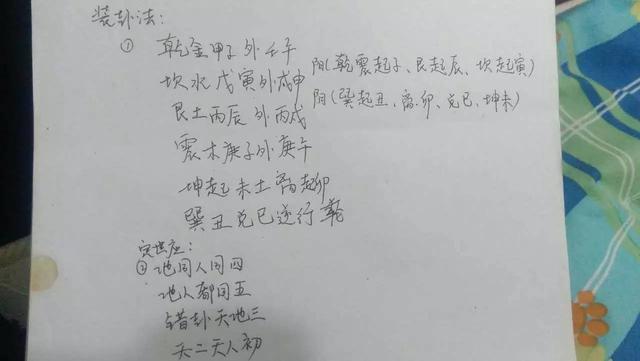 装卦法：
① 乾金甲子外壬午
坎水戊寅外戊申 阳(乾震起子、艮起辰、坎起寅)
艮土丙辰外丙戌 阳(巽起丑、离卯、兑巳、坤未)
震木庚子外庚午
坤起未土离起卯
巽丑兑巳逆行轮
定世应：
② 地同人同四
地人都同五
错卦天地三
天二天人初